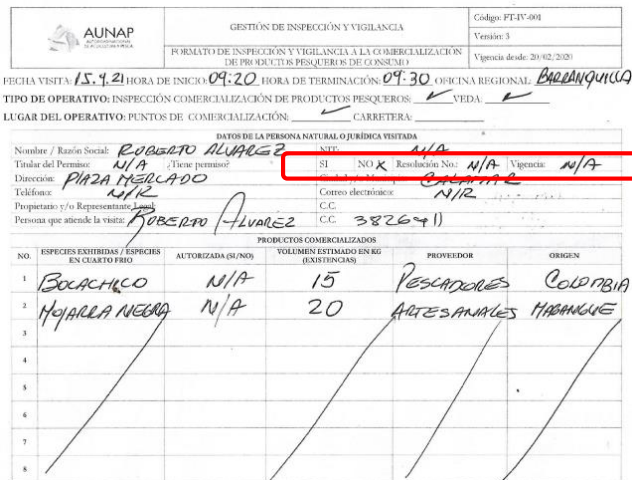 AUNAP
GESTIÓN DE INSPECCIÓN Y VIGILANCIA
FORMATO DE INSPECCIÓN Y VIGILANCIA A LA COMERCIALIZACIÓN DE PRODUCTOS PESQUEROS DE CONSUMO
Código: FT-IV-001
Versión: 3
Vigencia desde: 20/02/2020
FECHA VISITA: 15.4.21 HORA DE INICIO: 09:20 HORA DE TERMINACIÓN: 09:30 OFICINA REGIONAL: BARRANQUILLA
TIPO DE OPERATIVO: INSPECCIÓN COMERCIALIZACIÓN DE PRODUCTOS PESQUEROS: ✓ VEDA: ✓
LUGAR DEL OPERATIVO: PUNTOS DE COMERCIALIZACIÓN: ✓ CARRETERA:
DATOS DE LA PERSONA NATURAL O JURÍDICA VISITADA
Nombre / Razón Social: ROBERTO ALVAREZ NIT: N/A
Titular del Permiso: N/A ¿Tiene permiso? SI NO X Resolución No.: N/A Vigencia: N/A
Dirección: PLAZA MERCADO CALAMAR
Teléfono: N/R Correo electrónico: N/R
Propietario y/o Representante Legal: C.C.
Persona que atiende la visita: ROBERTO ALVAREZ C.C.
PRODUCTOS COMERCIALIZADOS
NO. ESPECIES EXHIBIDAS / ESPECIES EN CUARTO FRIO AUTORIZADA (SI/NO) VOLUMEN ESTIMADO EN KG (EXISTENCIAS) PROVEEDOR ORIGEN
1 BOCACHICO N/A 15 PESCADORES COLOMBIA
2 MOJARRA NEGRA N/A 20 ARTESANALES MAGANGUE
3
4
5
6
7
8